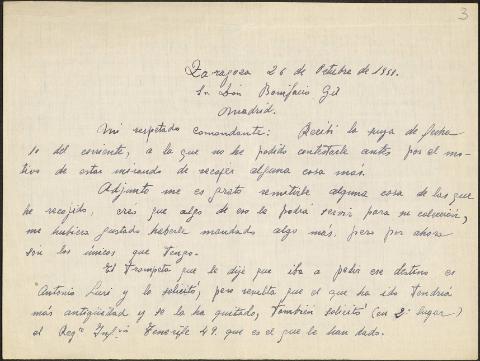 3
Zaragoza 26 de Octubre de 1951.
Sr Don Bonifacio Gil
Madrid.
Mi respetado comandante: Recibí la suya de fecha
10 del corriente, a la que no he podido contestarle antes por el mo-
tivo de estar mirando de recojer alguna cosa más.
Adjunto me es grato remitirle alguna cosa de las que
he recojido, creo que algo de eso le podrá servir para su colección,
me hubiera gustado haberle mandado algo más, pero por ahora
son los únicos que tengo.
El trompeta que le dije que iba a pedir ese destino es
Antonio y lo solicitó, pero resulta que el que ha ido tendría
más antigüedad y se lo ha quitado, también solicitó (en 2º lugar)
el Regto Infª Tenerife 49. que es el que le han dado.